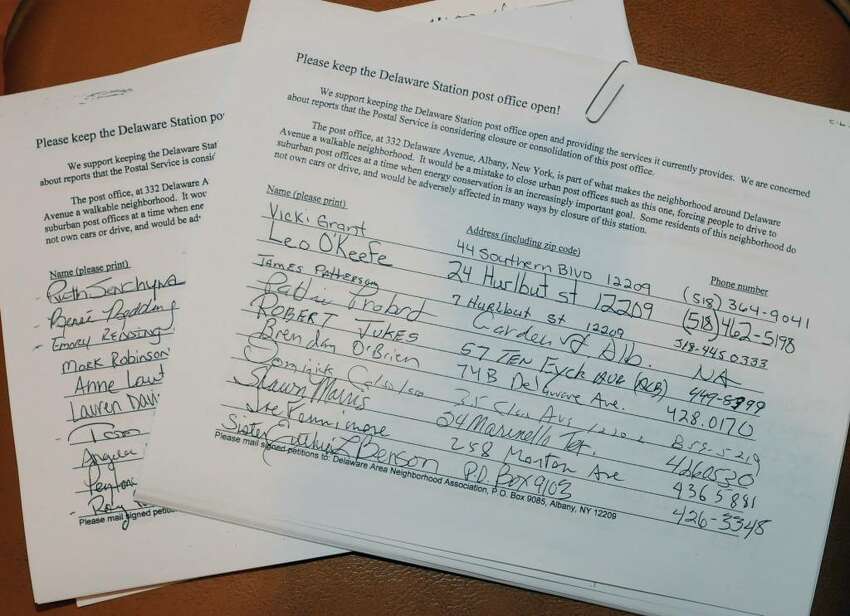 Please keep the Delaware Station po
We support keeping the Delaware Stat
about reports that the Postal Service is consi
The post office, at 332 Delaware A
Avenue a walkable neighborhood. It wou
suburban post offices at a time when ene
not own cars or drive, and would be ad
Name (please print)
Ruth
Emory
Mark Robinson
Anne
Lauren Davi
Angela
Roy
Please mail signed petitio
Please keep the Delaware Station post office open!
We support keeping the Delaware Station post office open and providing the services it currently provides. We are concerned
about reports that the Postal Service is considering closure or consolidation of this post office.
The post office, at 332 Delaware Avenue, Albany, New York, is part of what makes the neighborhood around Delaware
Avenue a walkable neighborhood. It would be a mistake to close urban post offices such as this one, forcing people to drive to
suburban post offices at a time when energy conservation is an increasingly important goal. Some residents of this neighborhood do
not own cars or drive, and would be adversely affected in many ways by closure of this station.
Name (please print) Address (including zip code) Phone number
Vicki Grant 44 Southern Blvd 12209 (518) 364-9041
Leo O'Keefe 24 Hurlbut st 12209 (518) 462-5198
JAMES PATTERSON 7 Hurlbut St 12209 518-445 0333
Garden St Alb. NA
ROBERT JUKES 57 TEN Eyck AVE
Brendan O'Brien 74B Delaware Ave. 428.0170
Dominik
Shawn Marris 24 Marinello Ter. 4260530
Joe 258 Morton Ave 4365881
Sister Benson P.O. Box 9103 426-3348
Please mail signed petitions to: Delaware Area Neighborhood Association, P.O. Box 9085, Albany, NY 12209